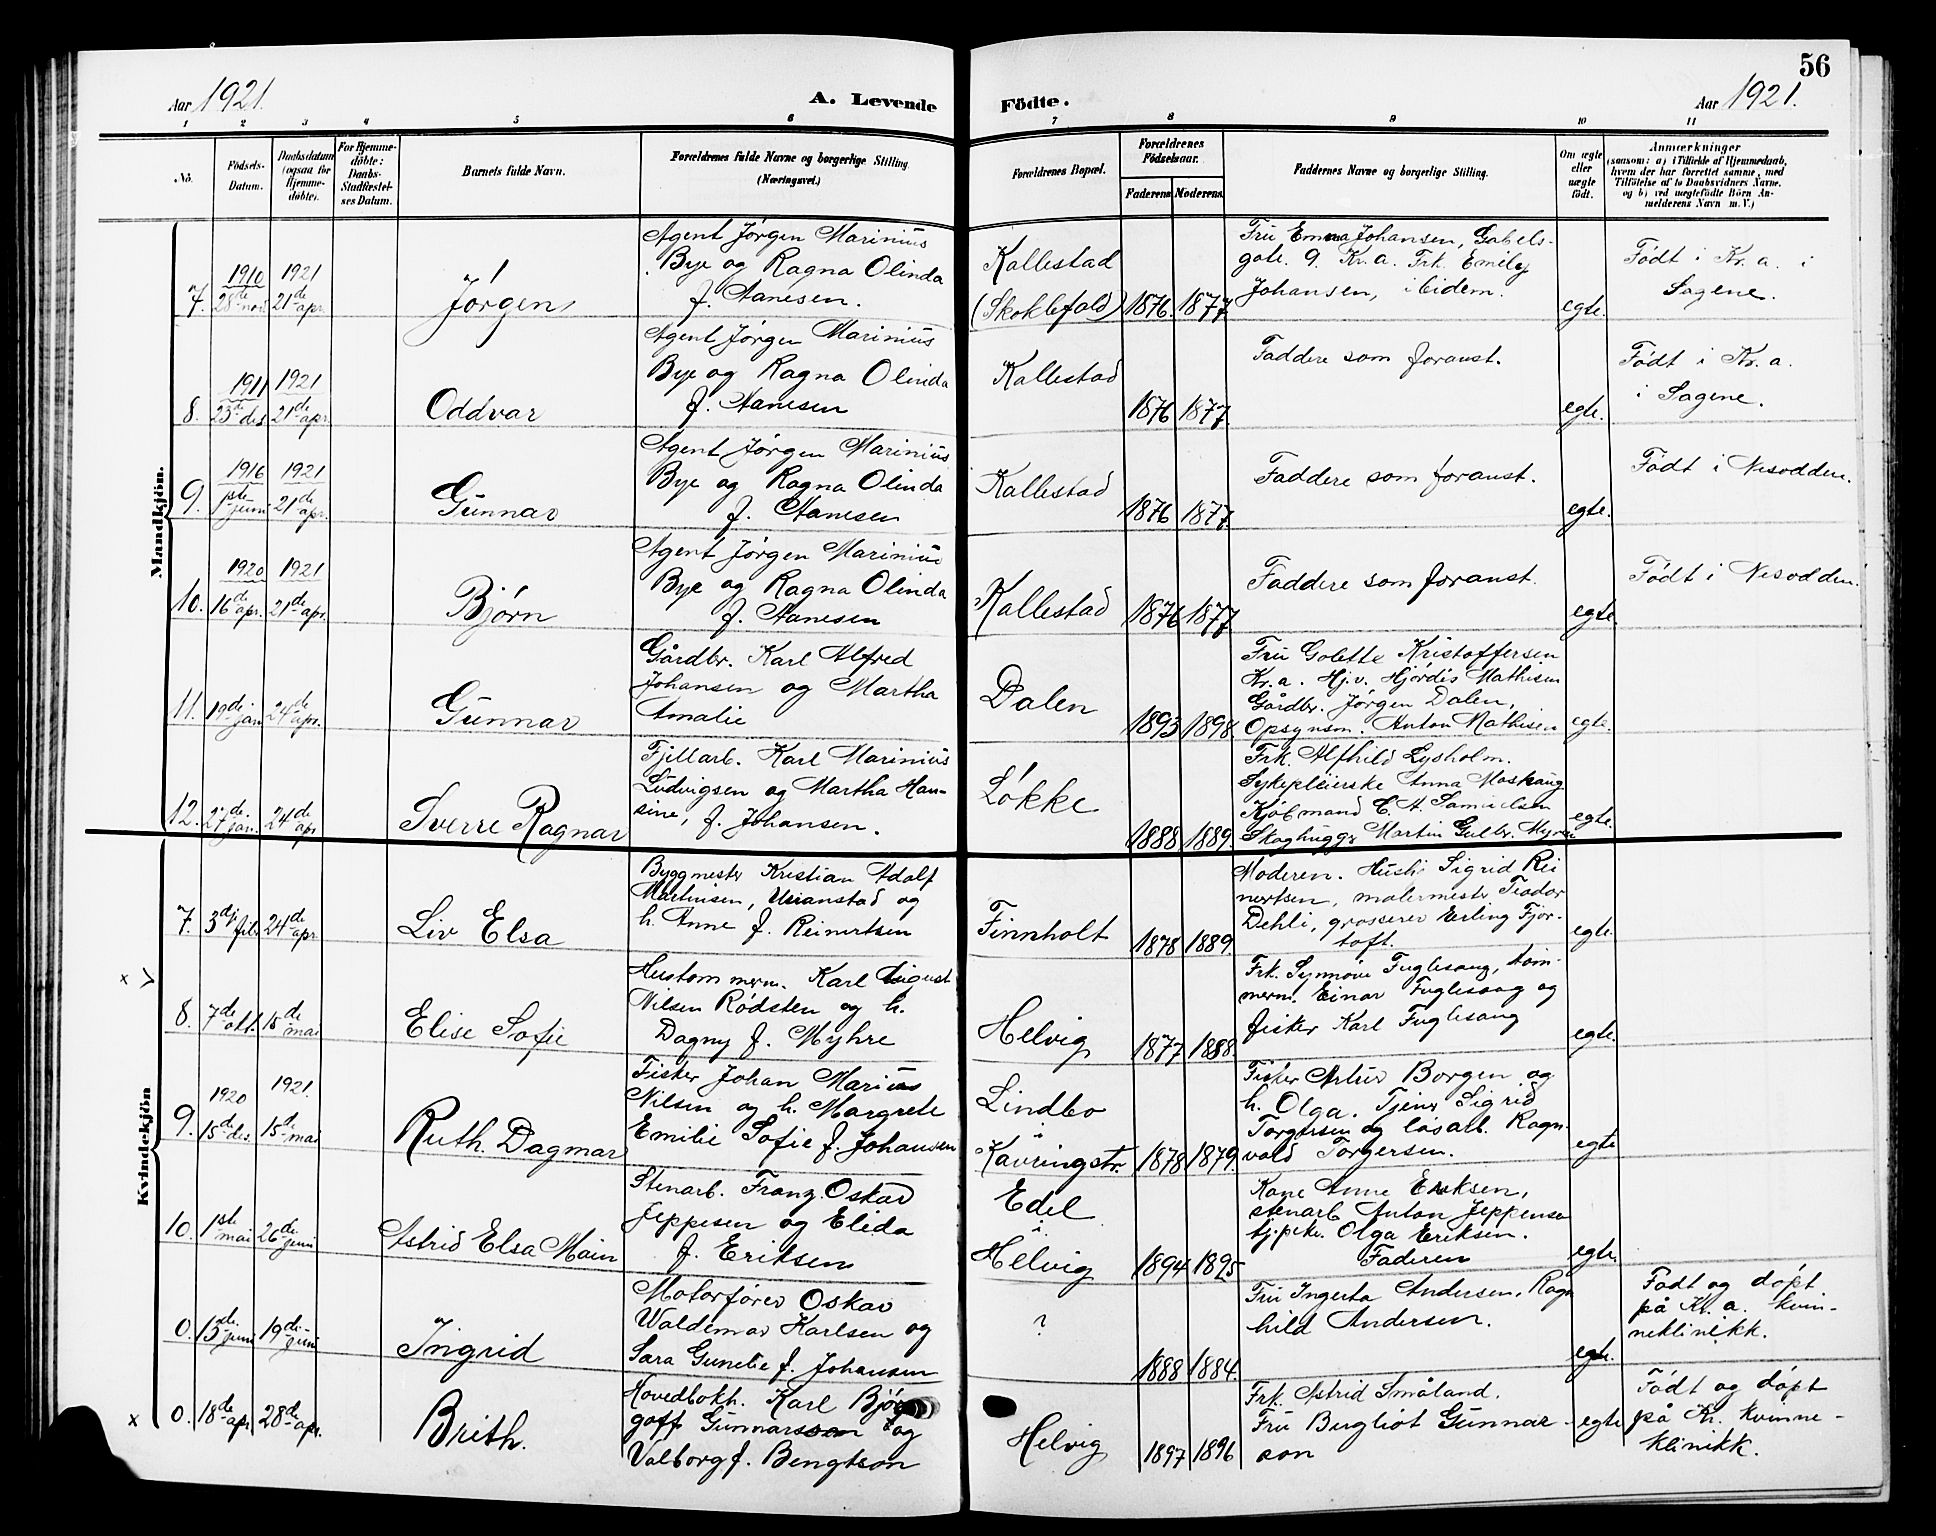 56
Aar 1921.
A. Levende Födte.
Aar 1921.
1 2 3 4 5 6 7 8 9 10 11
No.
Födsels-
Datum.
Daabsdatum
(ogsaa for
Hjemme-
döbte).
For Hjemme-
döbte:
Daabs-
Stadfæstel-
ses Datum.
Barnets fulde Navn.
Forældrenes fulde Navne og borgerlige Stilling
(Næringsvei.)
Forældrenes Bopæl.
Forældrenes
Födselsaar.
Faderens Moderens
Faddernes Navne og borgerlige Stilling.
Om ægte
eller
uægte
födt.
Anmærkninger
(saasom: a) i Tilfælde af Hjemmedaab,
hvem der har forrettet samme, med
Tilföielse af to Daabsvidners Navne.
og b) ved uægtefödte Börn An-
melderens Navn m. V.)
Mandkjön.
7.
1910
28de nov.
1921
21de apr.
Jørgen
Agent Jørgen Marinius
Bye og Ragna Olinda
f. Aanesen.
Kallestad
(Skoklefald)
1876. 1877
Fru Emma Johansen, Gabels-
gate. 9. Kr.a. Frk. Emily
Johansen, ibidem.
egte.
Født i Kr.a. i
Sagene.
8.
1911
23de des.
1921
21de apr.
Oddvar
Agent Jørgen Marinius
Bye og Ragna Olinda
f. Aanesen
Kallestad
1876 1877.
Faddere som foranst.
egte.
Født i Kr.a.
i Sagene.
9.
1916
1ste juni
1921
21de apr.
Gunnar
Agent Jørgen Marinius
Bye og Ragna Olinda
f. Aanesen
Kallestad
1876 1877.
Faddere som foranst.
egte.
Født i Nesodden.
10.
1920
16de apr.
1921
21de apr.
Bjørn
Agent Jørgen Marinius
Bye og Ragna Olinda
f. Aanesen
Kallestad
1876 1877
Faddere som foranst.
egte.
Født i Nesodden.
11.
19de jan.
24de apr.
Gunnar
Gårdbr. Karl Alfred
Johansen og Martha
Amalie
Dalen
1893 1898
Fru Golette Kristoffersen
Kr.a. Hj.v. Hjørdis Mathisen
Gårdbr. Jørgen Dalen,
Opsynsm. Anton Mathisen
egte.
12.
27de jan.
24de apr.
Sverre Ragnar
Fjellarb. Karl Marinius
Ludvigsen og Martha Han-
sine, f. Johansen.
Løkke
1888 1889
Frk. Alfhild Lysholm.
Sykepleierske Anna Moskaug
Kjøbmand C. A. Samuelsen
Skoghugger Martin Gulbr. Myren
egte.
Kvindekjön
7.
3dj feb.
24de apr.
Liv Elsa
Byggmester Kristian Adolf
Martinsen, og
h. Anne f. Reinertsen
Finnholt
1878 1889.
Moderen. Sigrid Rei
nertsen, malermester Teodor
Dehli, grosserer Erling Fjør-
toft.
egte.
x
8.
7de okt.
15de mai
Elise Sofie
Hustømmerm. Karl August
Nilsen Rødsten og h.
Dagny f. Myhre
Helvig
1877 1888.
Frk. Synnøve Fuglesang, tøm-
merm. Einar Fuglesang og
fisker Karl Fuglesang
egte.
9.
1920
15de des.
1921.
15de mai
Ruth Dagmar
Fisker Johan Marius
Nilsen og h. Margrete
Emilie Sofie f. Johansen
Lindbo
i
Kavringstr.
1878 1879.
Fisker Artur Borgen og
h. Olga. Tjener Sigrid
Torgersen og løsarb. Ragn-
vald Torgersen.
egte
10.
1ste mai
26de juni
Astrid Elsa Main
Stenarb. Franz Oskar
Jeppesen og Elida
f. Eriksen
Edel
i.
Helvig
1894 1895
Kone Anne Eriksen,
stenarb Anton Jeppensen
tj.pike. Olga Eriksen.
Faderen
egte.
0.
13de juni
19de juni
Ingrid
Motorfører Oskar
Waldemar Karlsen og
Sara Gunelie f. Johansen
?
1888 1884.
Fru Ingerta Andersen, Ragn
hild Andersen.
egte.
Født og døpt
på Kr.a. kvin-
neklinikk.
x
0.
18de apr
28de apr.
Brith.
Hovedbokh. Karl
Gunnarsson og
Valborg f. Bengtson
Helvig
1897 1896
Frk. Astrid Småland.
Fru Bergliot Gunnar-
son
egte
Født og døpt
på Kr. kvinne-
klinikk.